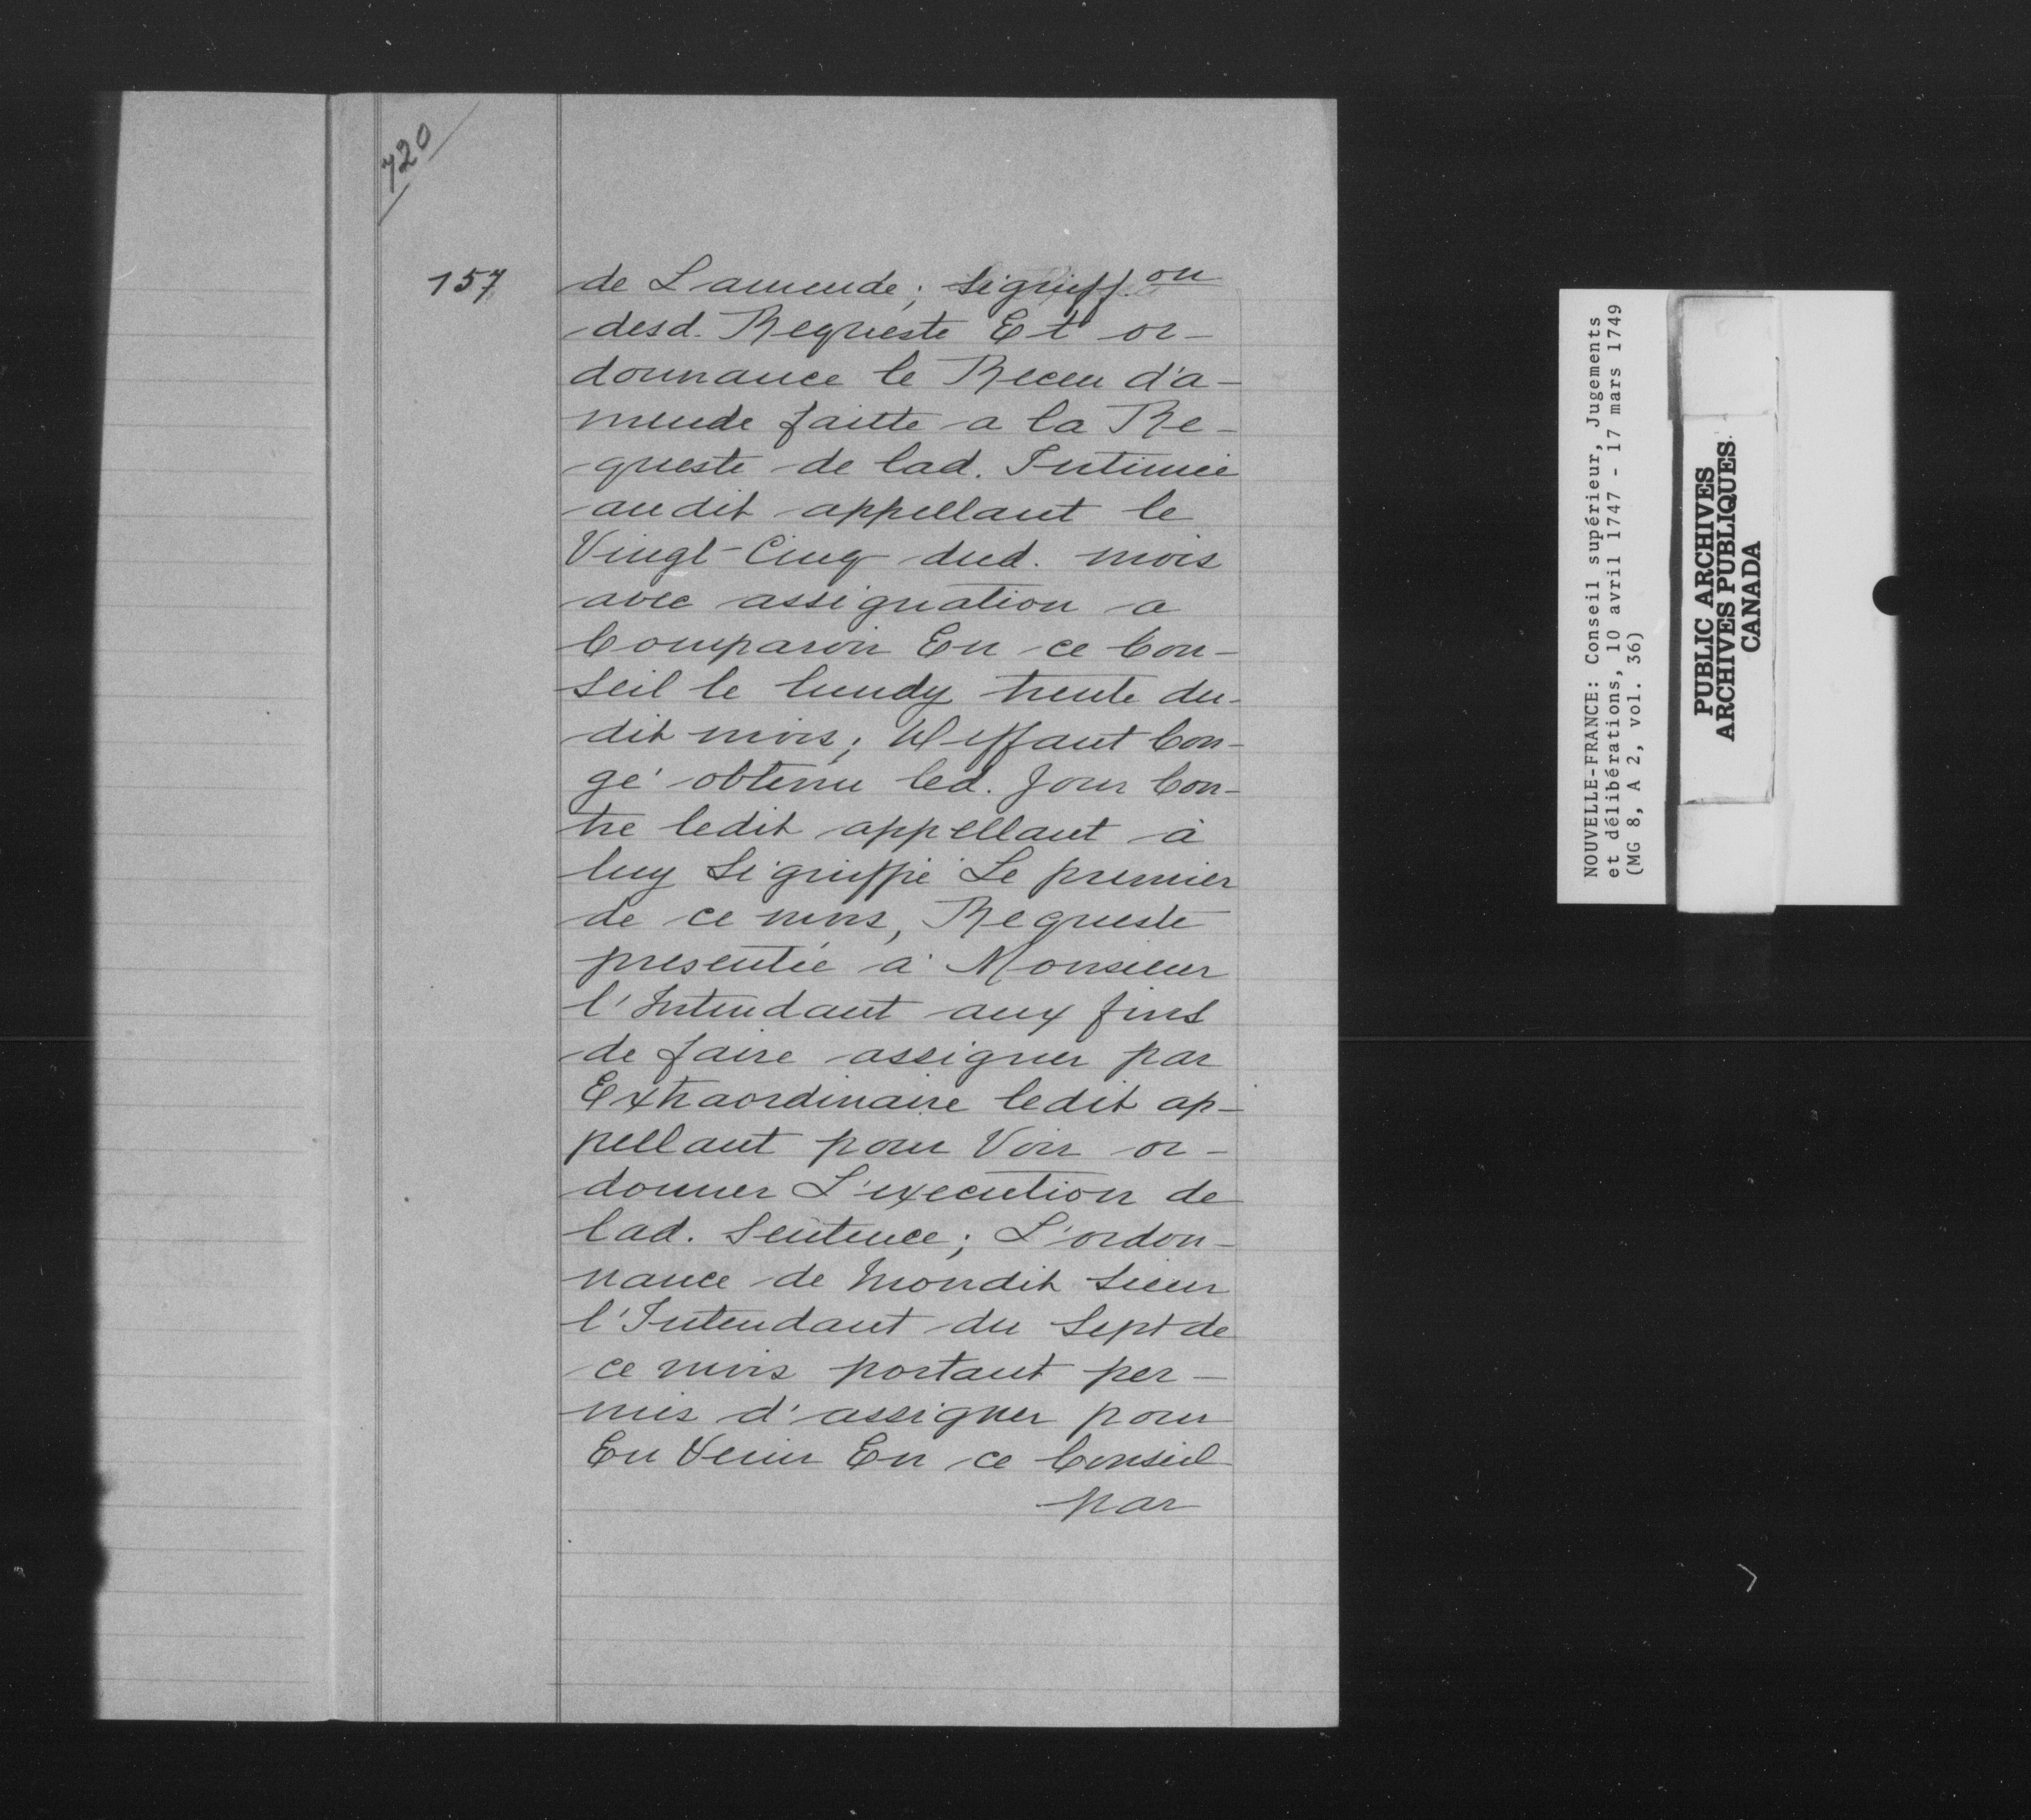 720
157
de Lamende; signiff.on
desd. Requeste Et or-
donnance le Receu d'a-
mende faitte a la Re-
queste de lad. Intimée
audit appellant le
Vingt-Cinq dud. mois
avec assignation a
Comparoir En ce Con-
seil le lundy trente du-
dit mois; Deffaut Con-
gé obtenu led. Jour Con-
tre ledit appellant à
luy Signiffié Le premier
de ce mois, Requeste
presentée à Monsieur
l'Intendant aux fins
de faire assigner par
Extraordinaire ledit ap-
pellant pour Voir or-
donner L'execution de
lad. Sentence; L'ordon-
nance de Mondit Sieur
l'Intendant du Sept de
ce mois portant per-
mis d'assigner pour
En Venir En ce Conseil
par
NOUVELLE-FRANCE: Conseil supérieur, Jugements
et délibérations, 10 avril 1747 - 17 mars 1749
(MG 8, A 2, vol. 36)
PUBLIC ARCHIVES
ARCHIVES PUBLIQUES
CANADA